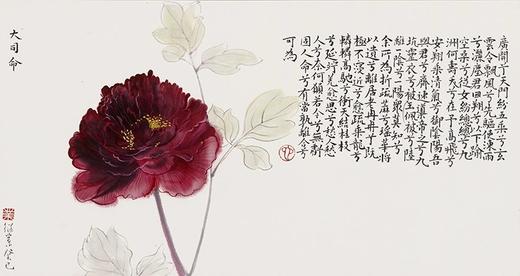 廣開兮天門紛吾乘兮玄
雲令飄風兮先驅使涷雨
兮灑塵君迴翔兮以下踰
空桑兮從女紛總總兮九
洲何壽夭兮在予高飛兮
安翔乘清氣兮御陰陽吾
與君兮齋速導帝之兮九
坑靈衣兮被被玉佩兮陸
離一陰兮一陽眾莫知兮
余所為折疏麻兮瑤華將
以遺兮離居老冉冉兮既
極不寖近兮愈疏乘龍兮
轔轔高馳兮衝天結桂枝
兮延竚羌愈思兮愁
人兮奈何願若今兮無虧
固人命兮有當孰離合兮
可為
大司命
癸巳